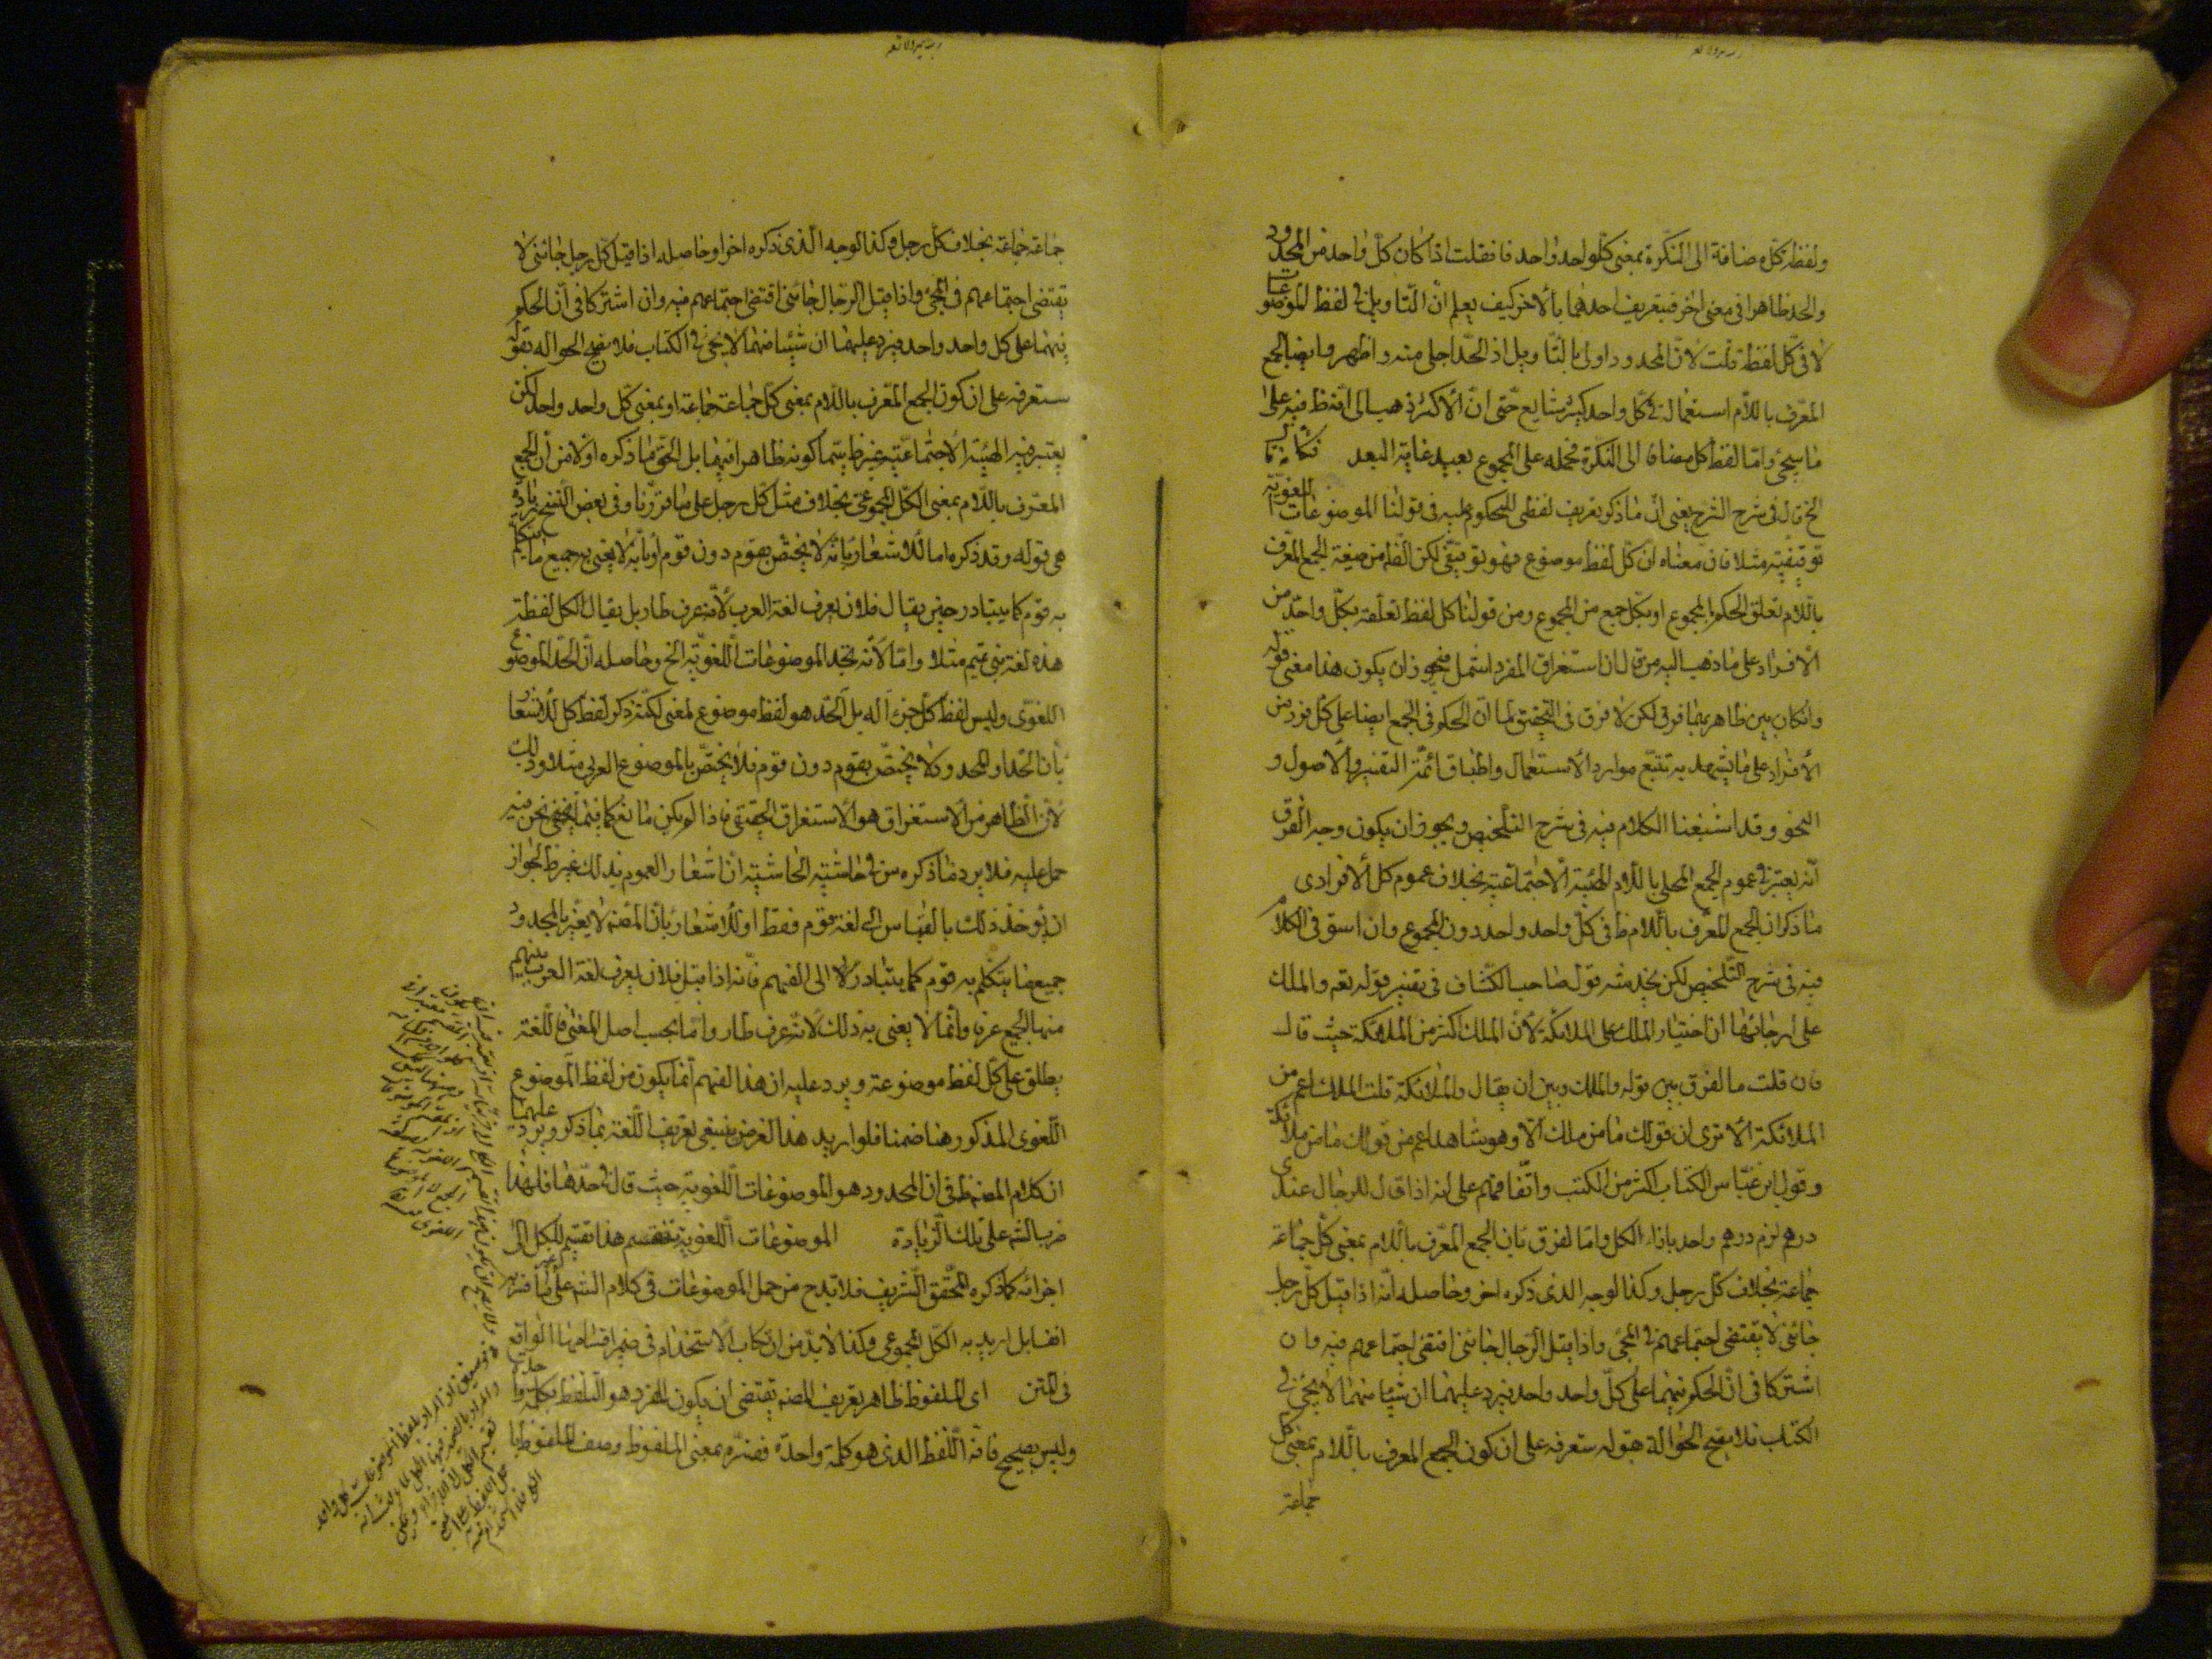 ولفظ كل مضافة الى النكرة بمعنى كل واحد واحد فان قلت اذا كان كل واحد من المحدود
والحد ظاهرا فى معنى اخر فتعريف احدهما بالاخر كيف يعلم ان التاويل فى لفظ الموضوعات
لا فى كل لفظ قلت لان المحدود اولى بالتاويل اذ الحد اجلى منه واظهر وايضا الجمع
المعرف باللام استعماله فى كل واحد كثير شايع حتى ان الاكثر ذهب الى انه ظ فيه على
ما سيجئ واما لفظ كل مضاف الى النكرة فحمله على المجموع بعيد غاية البعد
الخ قال فى شرح الشرح يعنى ان ما ذكر تعريف لفظى للمحكوم عليه فى قولنا الموضوعات اللغوية
توقيفية مثلا فان معناه ان كل لفظ موضوع فهو توقيفى لكن الفهم من صيغة الجمع المعرف
باللام تعلق الحكم بالمجموع او بكل جمع من المجموع ومن قولنا كل لفظ تعلقه بكل واحد من
الافراد على ما ذهب اليه من قال ان استغراق المفرد اشمل فيجوز ان يكون هذا معنى قوله
وان كان بين ظاهريهما فرق لكن لا فرق فى التحقيق لما ان الحكم فى الجمع ايضا على كل فرد من
الافراد على ما يشهد به تتبع موارد الاستعمال واطباق ائمة التفسير والاصول و
النحو وقد اشبعنا الكلام فيه فى شرح التلخيص ويجوز ان يكون وجه الفرق
انه يعتبر فى عموم الجمع المحلى باللام الهيئة الاجتماعية بخلاف عموم كل الافرادى
ما ذكر ان الجمع المعرف باللام ظ فى كل واحد واحد دون المجموع وان استوفى الكلام
فيه فى شرح التلخيص لكن يخدشه قول صاحب الكشاف فى تفسير قوله تعه والملك
على ارجائها ان اختيار الملك على الملائكة لان الملك اكثر من الملائكة حيث قال
فان قلت ما الفرق بين قوله والملك وبين ان يقال والملائكة قلت الملك اعم من
الملائكة الا ترى ان قولك ما من ملك الا وهو شاهد اعم من قولك ما من ملائكة
وقول ابن عباس الكتاب اكثر من الكتب واتفاقهم على انه اذا قال للرجال عندى
درهم لزم درهم واحد بازاء الكل واما الفرق بان الجمع المعرف باللام بمعنى كل جماعة
جماعة بخلاف كل رجل وكذا الوجه الذى ذكره اخر وحاصله انه اذا قيل كل رجل
جائنى لا يقتضى اجتماعهم فى المجئ واذا قيل الرجال جائنى اقتضى اجتماعهم فيه وان
اشتركا فى ان الحكم فيهما على كل واحد واحد فيرد عليهما ان شيئا منهما لا يجئ فى
الكتاب فلا يصح الحوالة بقوله ستعرفه على ان كون الجمع المعرف باللام بمعنى كل
جماعة
جماعة جماعة بخلاف كل رجل وكذا الوجه الذى ذكره اخرا وحاصله اذا قيل كل رجل جائنى لا
يقتضى اجتماعهم فى المجئ واذا قيل الرجال جائنى اقتضى اجتماعهم فيه وان اشتركا فى ان الحكم
فيهما على كل واحد واحد فيرد عليهما ان شيئا منهما لا يجئ فى الكتاب فلا يصح الحوالة بقوله
ستعرفه على ان كون الجمع المعرف باللام بمعنى كل جماعة جماعة او بمعنى كل واحد واحد لكن
يعتبر فيه الهيئة الاجتماعية غير ظ سيما كونه ظاهرا فيهما بل الحق ما ذكره اولا من ان الجمع
المعرف باللام بمعنى الكل المجموعى بخلاف مثل كل رجل على ما قررنا وفى بعض النسخ زيادة
هى قوله وقد ذكره اما للاشعار بانه لا يختص بقوم دون قوم او بانه لا يعنى به جميع ما يتكلم
به قوم كما يتبادر حين يقال فلان يعرف لغة العرب لانه عرف طار بل يقال لكل لفظة
هذه لغة بنى تميم مثلا واما لانه يحد الموضوعات اللغوية الخ وحاصله ان الحد للموضوع
اللغوى وليس لفظ كل جزءا له بل الحد هو لفظ موضوع لمعنى لكنه ذكر لفظ كل للاشعار
بان الحد والمحدود كلا يختص بقوم دون قوم فلا يختص بالموضوع العربى مثلا وذلك
لان الظاهر من الاستغراق هو الاستغراق الحقيقى فاذا لم يكن مانع كما فيما نحن فيه
حمل عليه فلا يرد ما ذكره س فى حاشية الحاشية ان اشعار العموم بذلك غير ظ لجواز
ان يؤخذ ذلك بالقياس الى لغة قوم فقط او للاشعار بان المص لا يعنى بالمحدود
جميع ما يتكلم به قوم كما يتبادر لا الى الفهم فانه اذا قيل فلان يعرف لغة العرب يفهم
منها الجميع عرفا وانما لا يعنى به ذلك لانه عرف طار واما بحسب اصل المعنى فاللغة
يطلق على كل لفظ موضوعة ويرد عليه ان هذا الفهم انما يكون من لفظ الموضوع
اللغوى المذكور هنا ضمنا فلو اريد هذا الغرض ينبغى تعريف اللغة بما ذكر ويرد عليهما
ان كلام المص ظ فى ان المحدود هو الموضوعات اللغوية حيث قال فى حدها فلهذا
ضرب الش على تلك الزيادة الموضوعات اللغوية تنقسم هذا تقسيم للكل الى
اجزائه كما ذكره المحقق الشريف فلا بد ح من حمل الموضوعات فى كلام الش على ما فسره
انفا بل اريد به الكل المجموعى وكذا لا بد من ارتكاب الاستخدام فى ضمير اقسامها الواقع
فى المتن اى الملفوظ ظاهر تعريف المص يقتضى ان يكون المفرد هو التلفظ بكلمة واحدة
وليس بصحيح فانه اللفظ الذى هو كلمة واحدة ففسره بمعنى الملفوظ وصف الملفوظ با